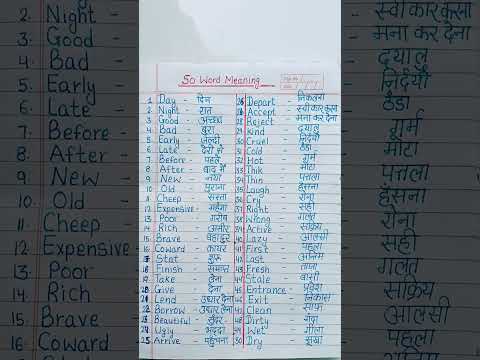 50 Word Meaning
1 Day - दिन
2. Night - रात
3. Good - अच्छा
4. Bad - बुरा
5. Early - जल्दी
6. Late - देरी से
7 Before - पहले
8 After - बाद में
9 New - नया
10. Old - पुराना
11 Cheep - सस्ता
12 Expensive - महंगा
13 Poor - गरीब
14 Rich - अमीर
15 Brave - बहादुर
16 Coward - कायर
17 Stat - शुरू
18 Finish - समाप्त
19 Take - लेना
20 Give - देना
21 Lend - उधार देना
22 Borrow - उधार लेना
23 Beautiful - सुंदर
24 Ugly - भद्दा
25 Arrive - पहुंचना
26 Depart - निकलना
Accept - स्वीकार करना
28 Reject - मना कर देना
29 Kind - दयालु
30 Cruel - निर्दयी
31 Cold - ठंडा
32 Hot - गर्म
33 Thik - मोटा
34 Thin - पतला
35 Laugh - हंसना
36 Cry - रोना
37 Right - सही
38 Wrong - गलत
39 Active - सक्रिय
40 Lazy - आलसी
41 First - पहला
42 Last - अंतिम
43 Fresh - ताजा
44 Stale - बासी
45 Entrance - प्रवेश
46 Exit - निकास
47 Clean - साफ
48 Dirty - गंदा
49 Wet - गीला
50 Dry - सूखा
2. Night -
3. Good -
4. Bad -
5. Early -
6. Late -
7. Before -
8. After -
9. New -
10. Old -
11 Cheep
12 Expensive
13 Poor
14 Rich
15 Brave
स्वीकार करना
मना कर देना
दयालु
निर्दयी
ठंडा
गर्म
मोटा
पतला
हंसना
रोना
सही
गलत
सक्रिय
आलसी
पहला